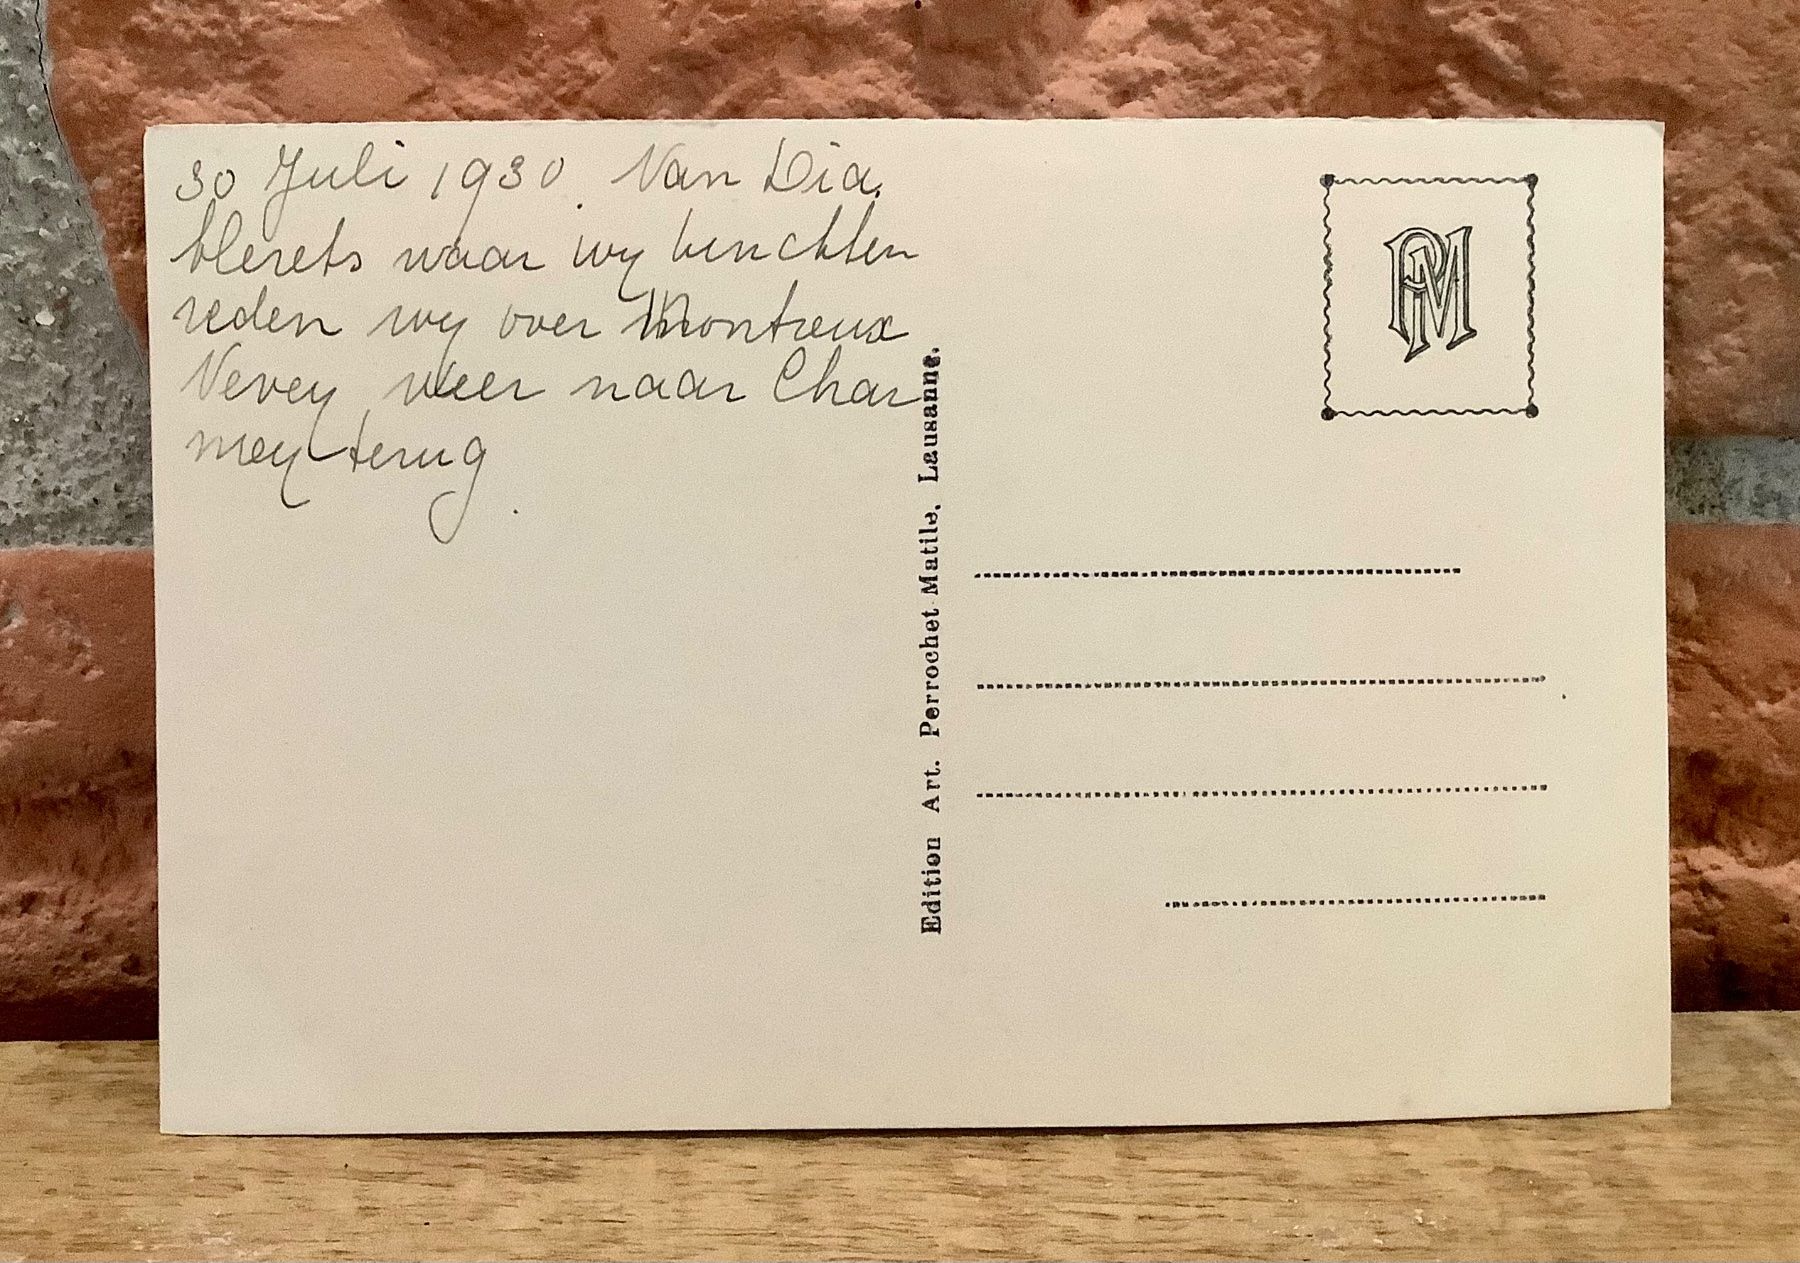 30 Juli 1930. Van Dia
blerets waar wy lunchten
reden wy over Montreux
Vevey, weer naar Char
mey terug.
Edition Art. Perrochet-Matile, Lausanne.
PM